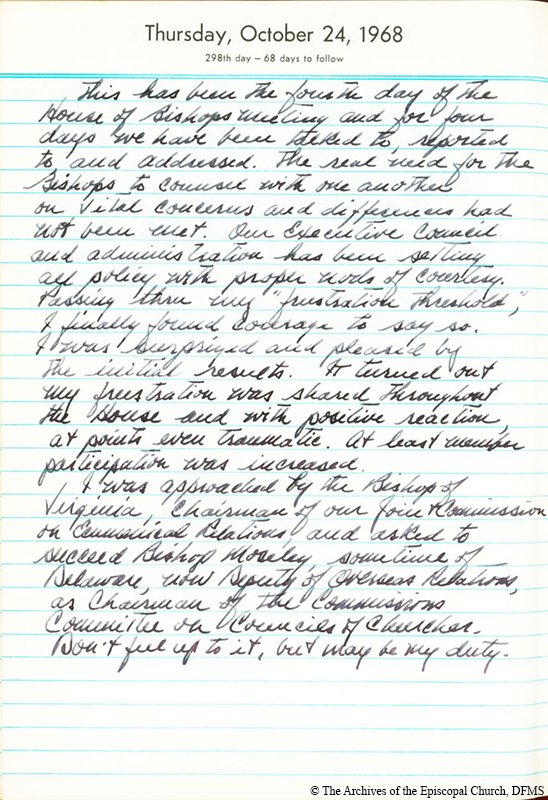 Thursday, October 24, 1968
298th day – 68 days to follow
This has been the fourth day of the
House of Bishops meeting and for four
days we have been talked to, reported
to and addressed. The real need for the
Bishops to counsel with one another
on vital concerns and differences had
not been met. Our Executive Council
and administration has been setting
all policy with proper nods of courtesy.
Passing thru my "frustration threshold",
I finally found courage to say so.
I was surprized and pleased by
the initial results. It turned out
my frustration was shared throughout
the House and with positive reaction,
at points even traumatic. At least member
participation was increased.
I was approached by the Bishop of
Virginia, Chairman of our Joint Commission
on Ecumenical Relations and asked to
succeed Bishop Moseley, sometime of
Delaware, now Deputy of Overseas Relations,
as Chairman of the Commissions
Committee on Councils of Churches.
Don't feel up to it, but may be my duty.
© The Archives of the Episcopal Church, DFMS